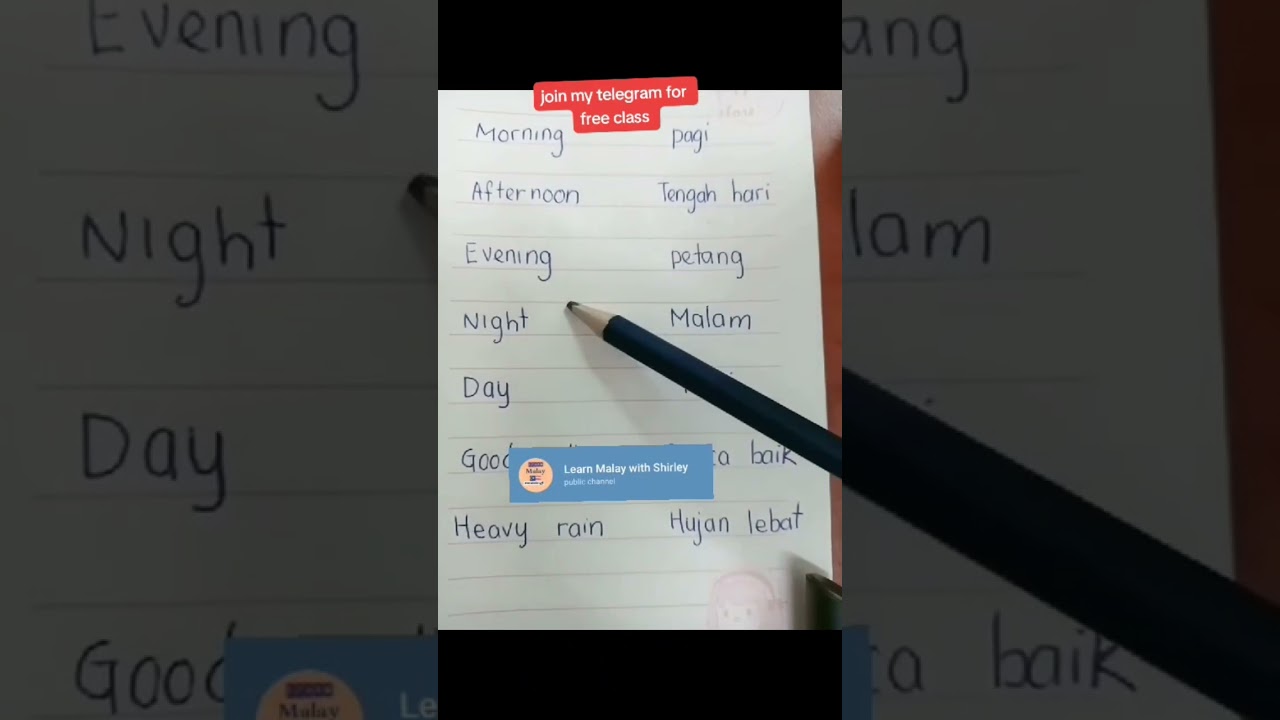 join my telegram for
free class
Morning pagi
Afternoon Tengah hari
Evening petang
Night Malam
Day
baik
Learn Malay with Shirley
public channel
Heavy rain Hujan lebat
Evening
Night
Day
Malay